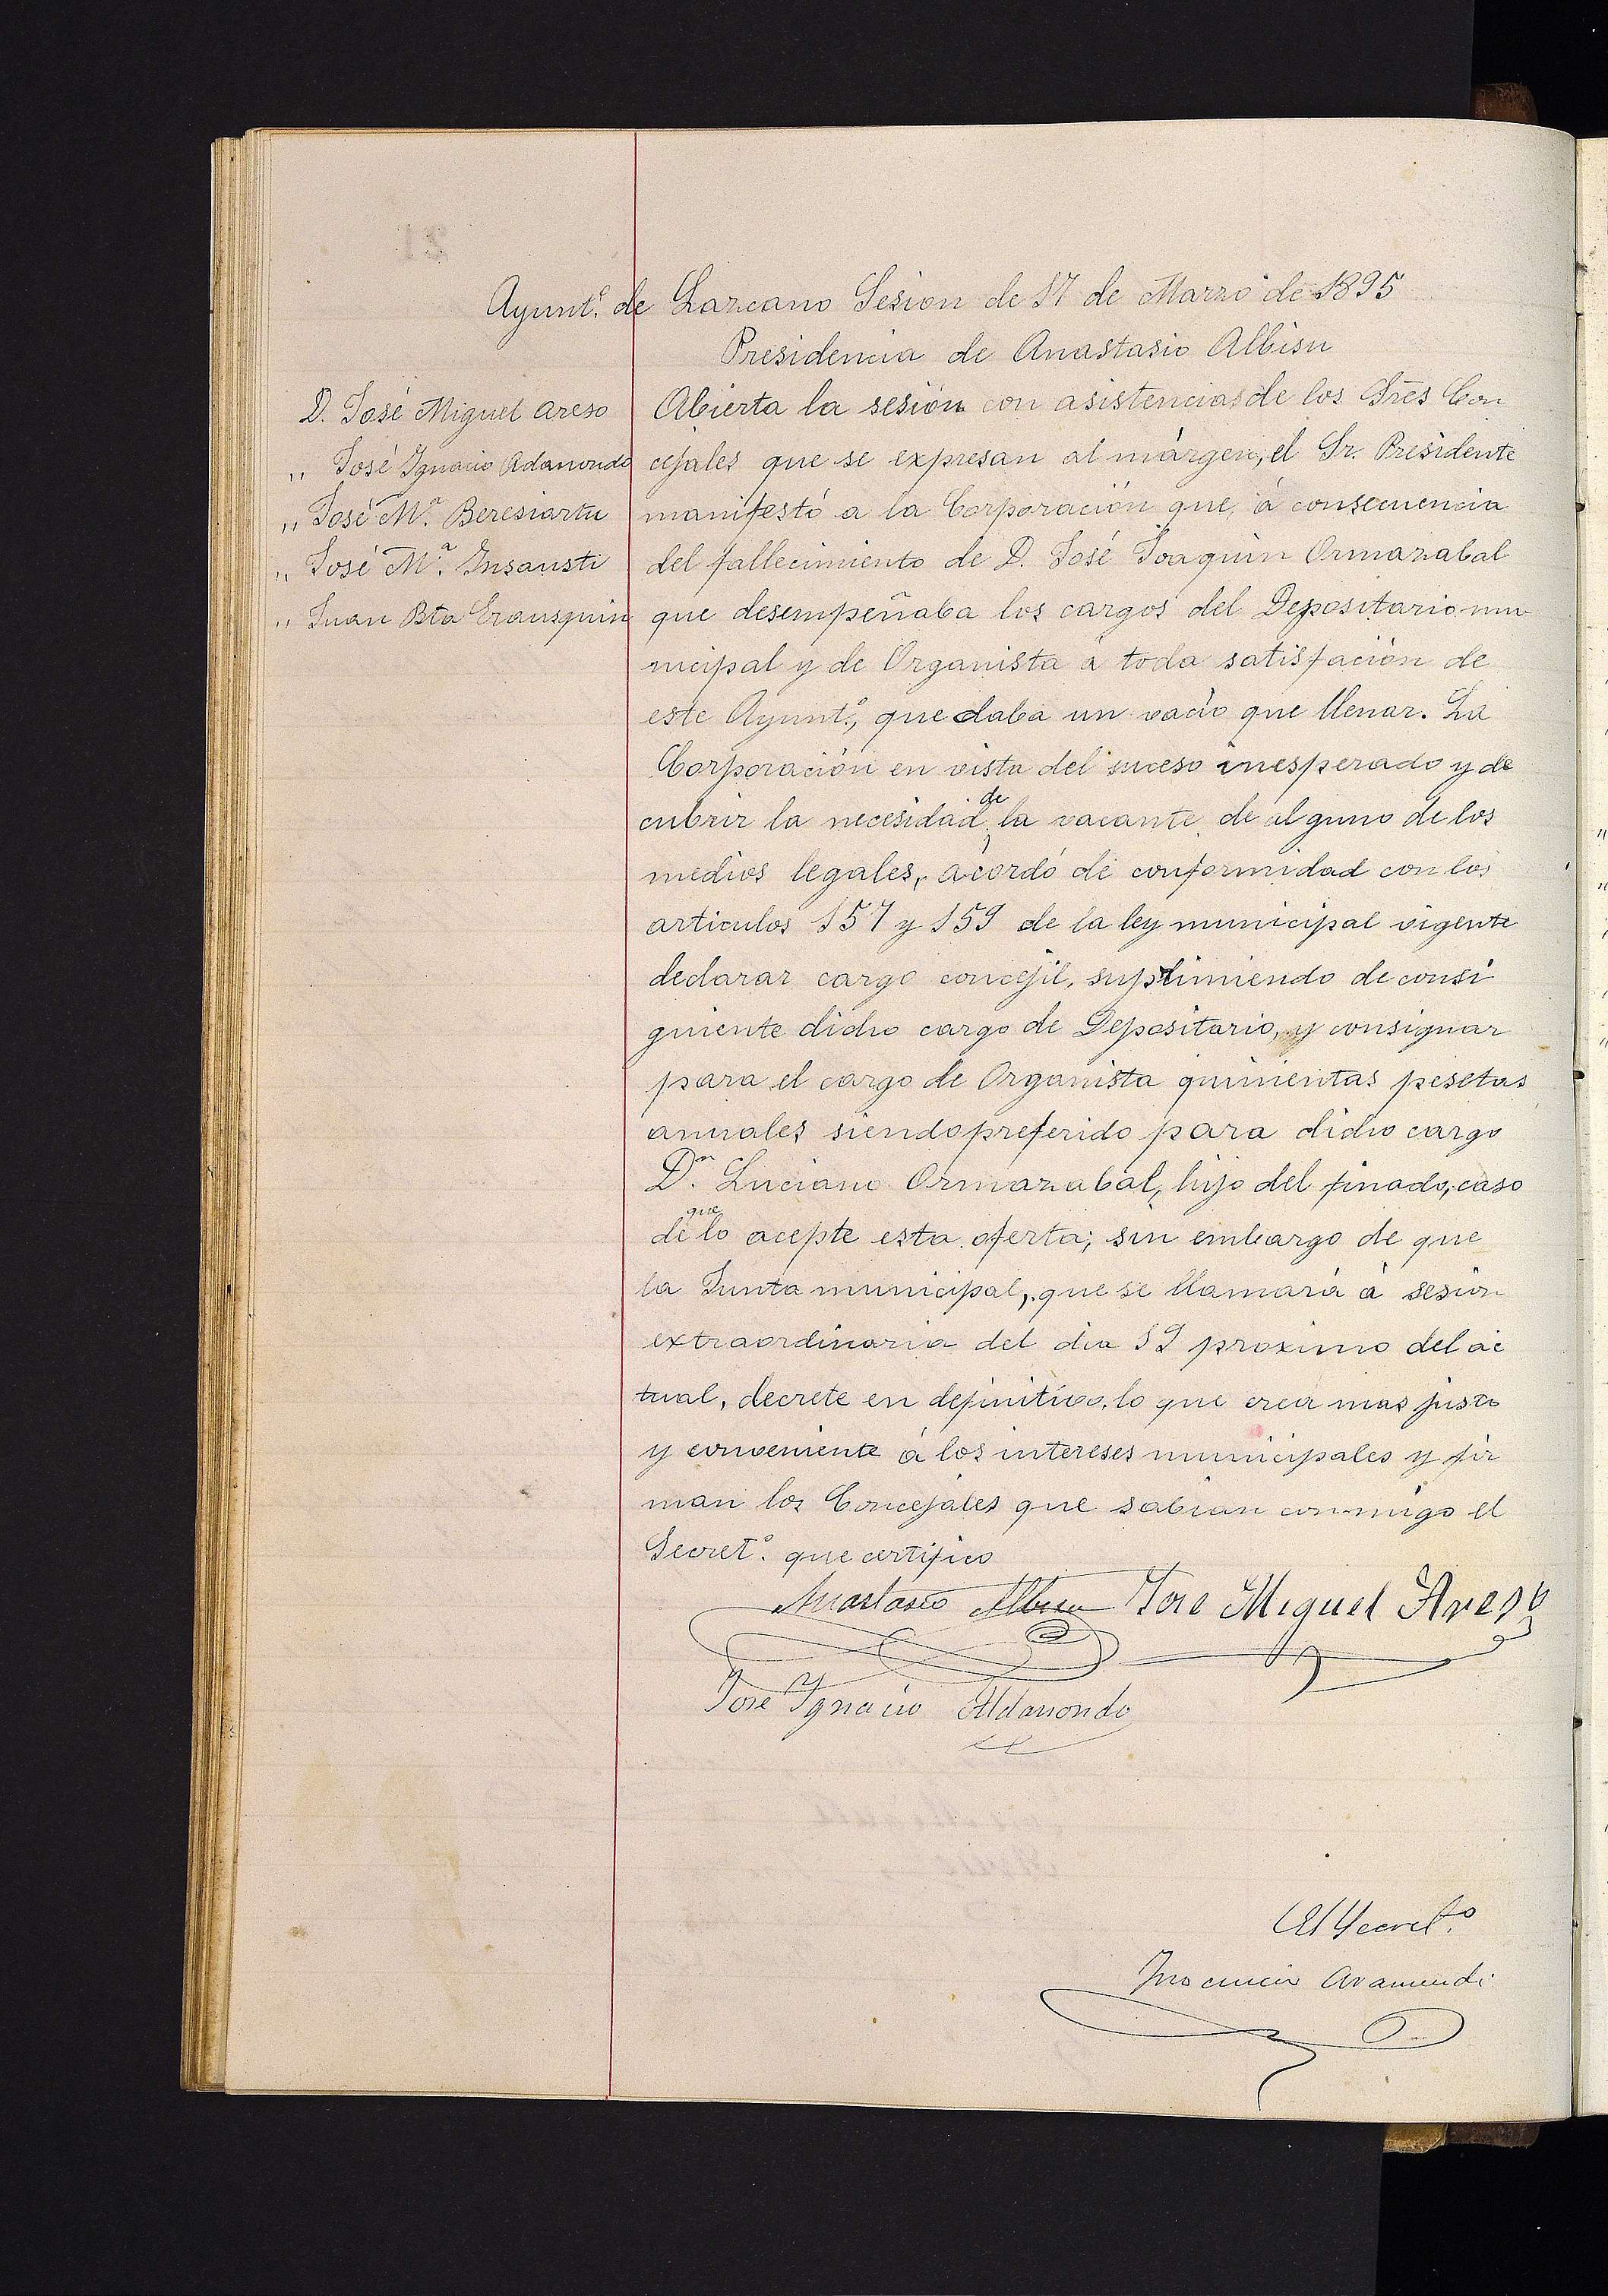 Ayunt.º de Lazcano Sesion de 17 de Marzo de 1895
Presidencia de Anastasio Albisu
D. José Miguel Areso
„ José Ignacio Adanondo
„ José M.ª Beresiartu
„ José M.ª Insausti
„ Juan Bta Erausquin
Abierta la sesión con asistencias de los Sres Con
cejales que se expresan al márgen, el Sr. Presidente
manifestó a la Corporación que, á consecuencia
del fallecimiento de D. José Joaquin Ormazabal
que desempeñaba los cargos del Depositario mu-
nicipal y de Organista a toda satisfación de
este Ayunt.º, quedaba un vacio que llenar. La
Corporación en vista del suceso inesperado y de
cubrir la necesidad de la vacante de alguno de los
medios legales, acordó de conformidad con los
articulos 157 y 159 de la ley municipal vigente
declarar cargo concejil, suprimiendo de consi
guiente dicho cargo de Depositario, y consignar
para el cargo de Organista quinientas pesetas
anuales siendo preferido para dicho cargo
D.n Luciano Ormazabal, hijo del finado, caso
de que lo acepte esta oferta; sin embargo de que
la Junta municipal, que se llamará á sesion
extraordinaria del dia 19 proximo del ac
tual, decrete en definitivo, lo que crea mas justo
y conveniente á los intereses municipales y fir
man los Concejales que sabian conmigo el
Secret.º que certifico
Anastasio Albisu Jose Miguel Areso
Jose Ygnacio Aldanondo
El Secret.º
Inocencio Aramendi